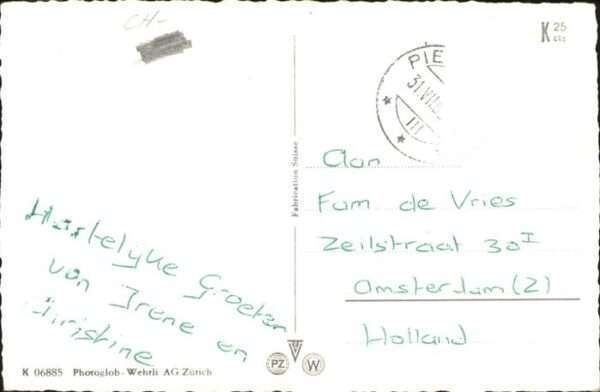 CH-
K 25
cts
PIE
31.VII
III
Fabrication Suisse
Aan
Fam. de Vries
Zeilstraat 30 I
Amsterdam (Z)
Holland
Hartelyke Groeten
van Irene en
Christine
K 06885 Photoglob-Wehrli AG Zürich
PZ W